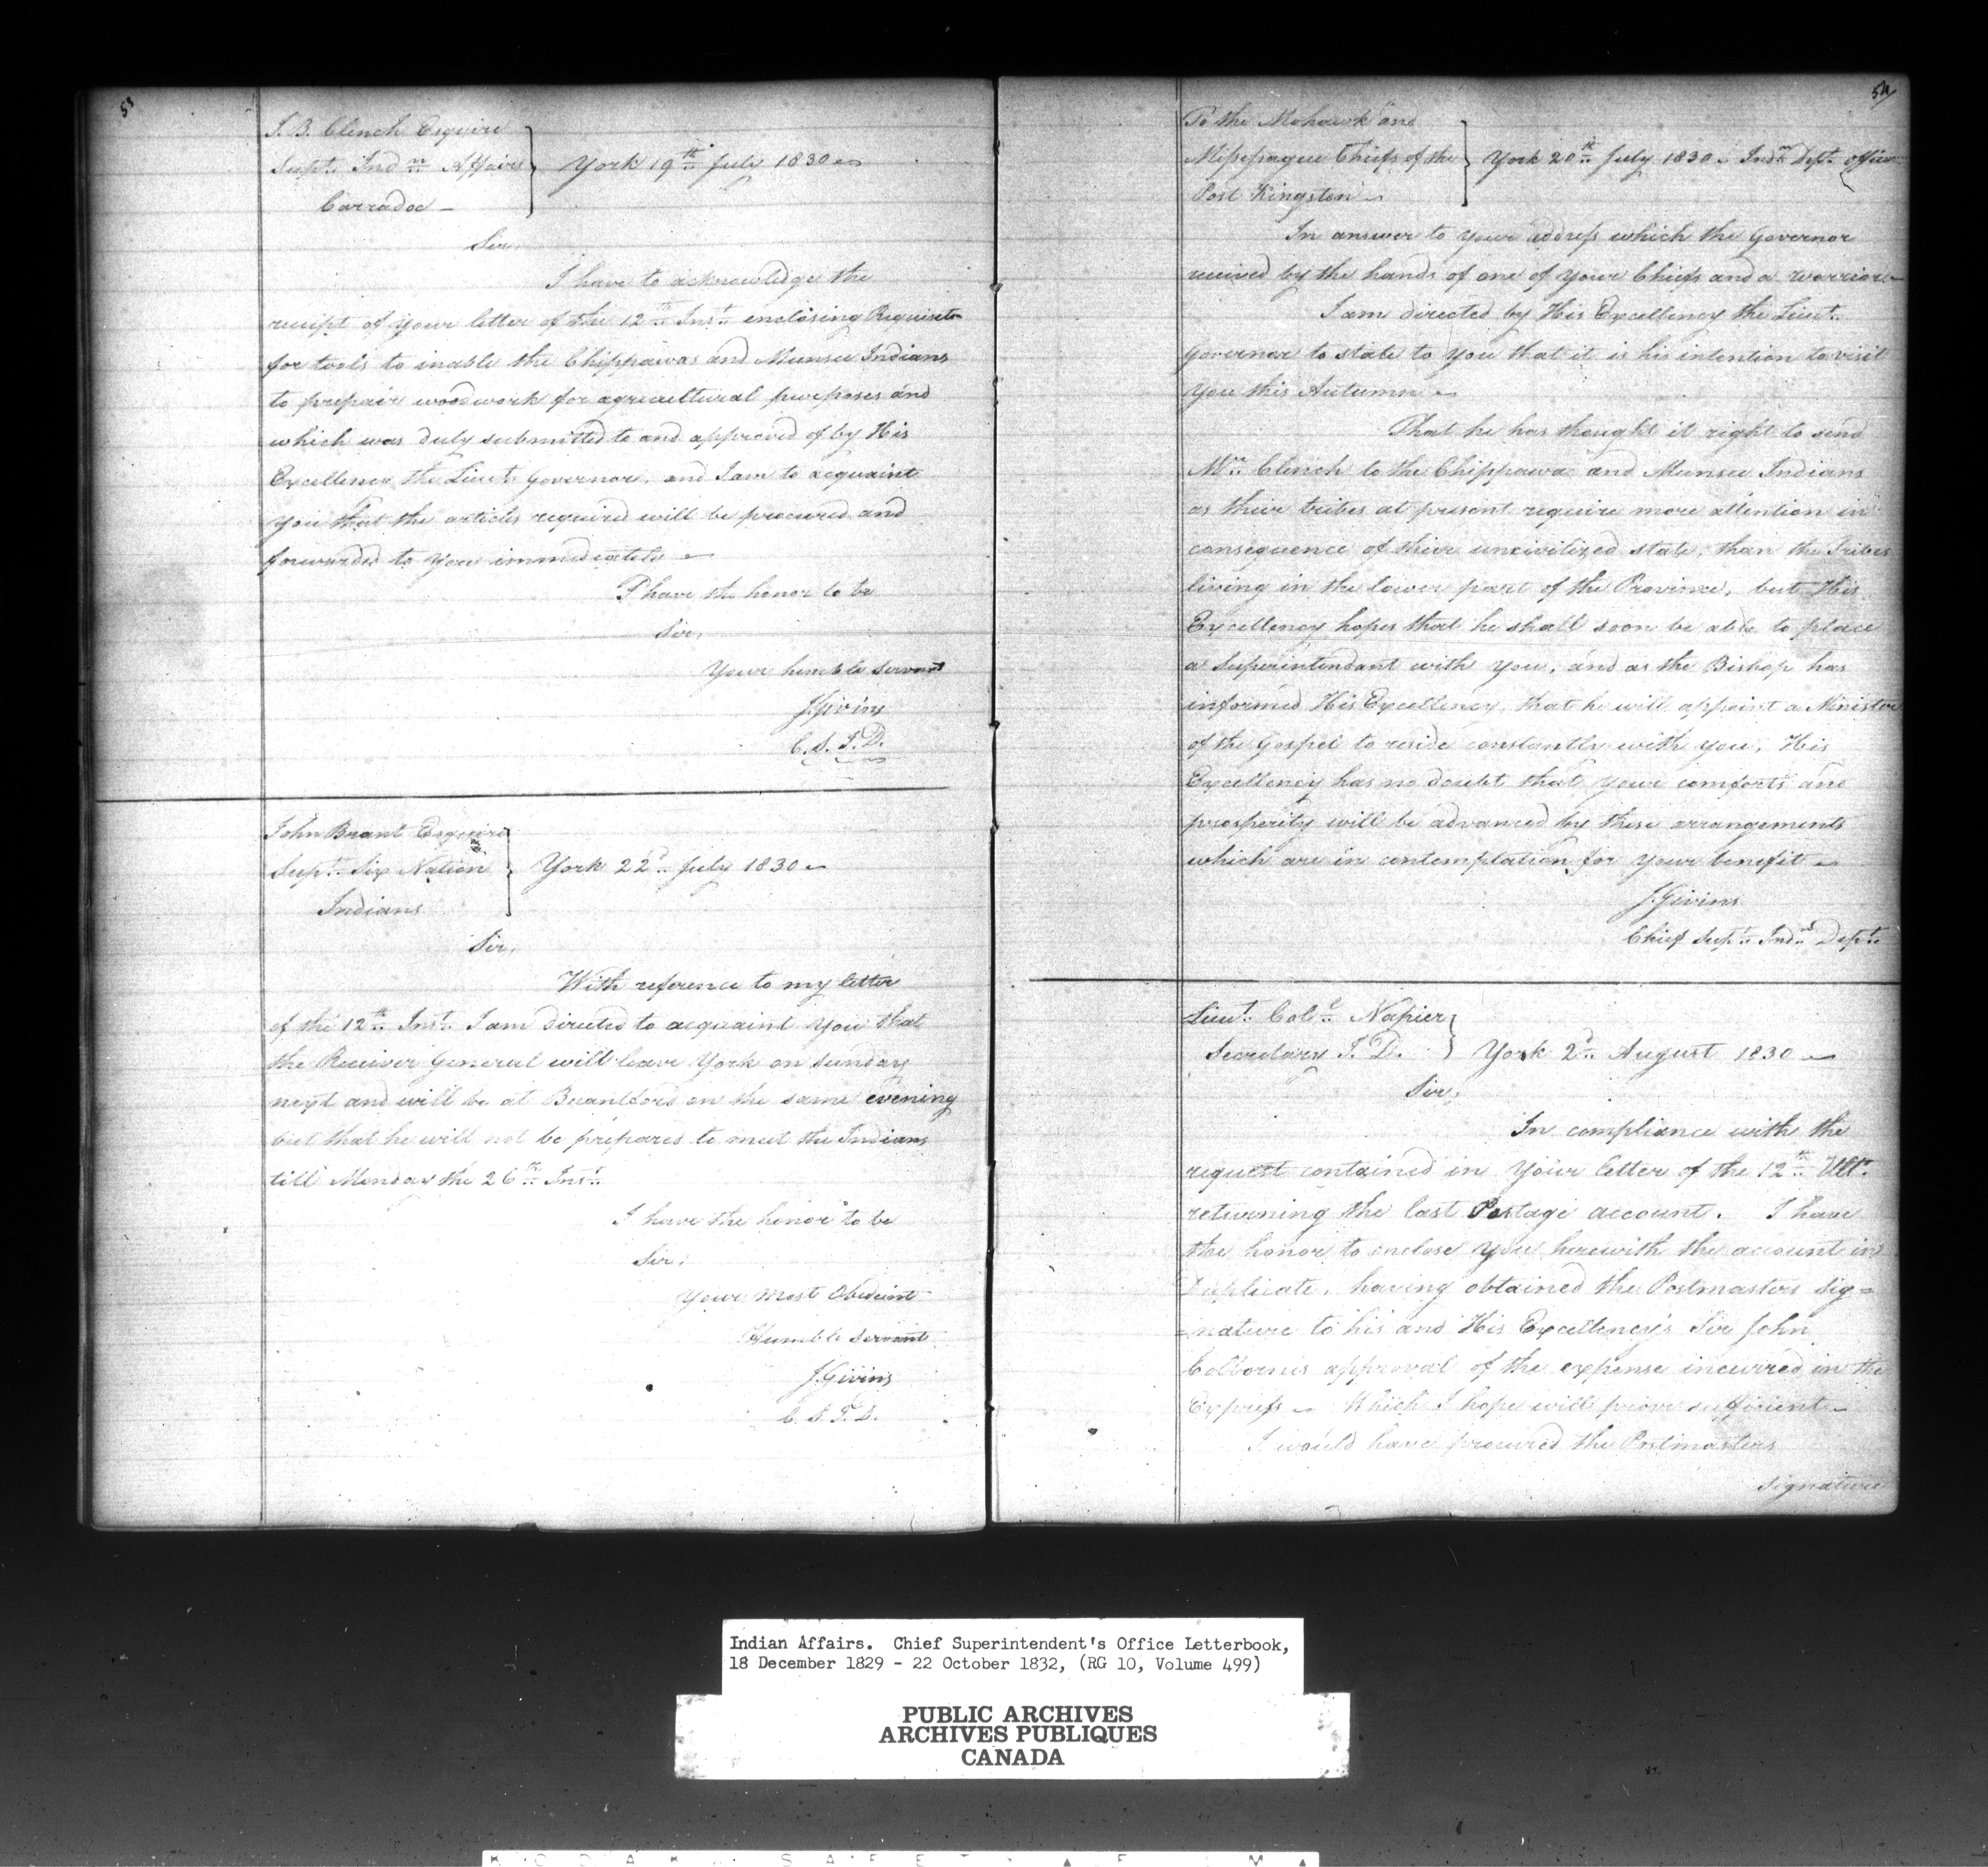 53
J. B. Clench Esquire
Supt. Indn. Affairs
Carradoc
York 19th July 1830
Sir,
I have to acknowledge the
receipt of your letter of the 12th Inst. enclosing Requisitn
for tools to inable the Chippawas and Munsee Indians
to prepair woodwork for agricultural purposes and
which was duly submitted to and approved of by His
Excellency the Lieut. Governor, and I am to acquaint
you that the articles required will be procured and
forwarded to you immediately
I have the honor to be
Sir,
Your humble servant
J. Givins
C. S. I. D.
John Brant Esquire
Supt. Six Nation
Indians
York 22d. July 1830
Sir,
With reference to my letter
of the 12th Inst. I am directed to acquaint you that
the Receiver General will leave York on Sunday
next and will be at Brantford on the same evening
but that he will not be prepared to meet the Indians
till Monday the 26th Inst.
I have the honor to be
Sir,
Your Most Obedient
Humble Servant
J. Givins
C. S. I. D.
54
To the Mohawk and
Missasague Chiefs of the
Post Kingston
York 20th July 1830 Indn Dept. office
In answer to your address which the Governor
received by the hands of one of your Chiefs and a warrior
I am directed by His Excellency the Lieut.
Governor to state to you that it is his intention to visit
you this Autumn
That he has thought it right to send
Mr. Clench to the Chippawa and Munsee Indians
as their tribes at present require more attention in
consequence of their uncivilized state, than the Tribes
living in the lower part of the Province, but His
Excellency hopes that he shall soon be able to place
a Superintendant with you, and as the Bishop has
informed His Excellency that he will appoint a Minister
of the Gospel to reside constantly with you, His
Excellency has no doubt that your comforts and
prosperity will be advanced by these arrangements
which are in contemplation for your benefit
J. Givins
Chief Supt. Indn Dept.
Lieut. Coll. Napier
Secretary I. D.
York 2d. August 1830
Sir,
In compliance with the
request contained in your letter of the 12th Ulto.
returning the last Postage account. I have
the honor to enclose you herewith the account in
Duplicate, having obtained the Postmasters sig=
=nature to his and His Excellency's Sir John
Colbornes approval of the expense incurred in the
Express Which I hope will prove sufficient
I would have procured the Postmasters
signature
Indian Affairs. Chief Superintendent's Office Letterbook,
18 December 1829 - 22 October 1832, (RG 10, Volume 499)
PUBLIC ARCHIVES
ARCHIVES PUBLIQUES
CANADA